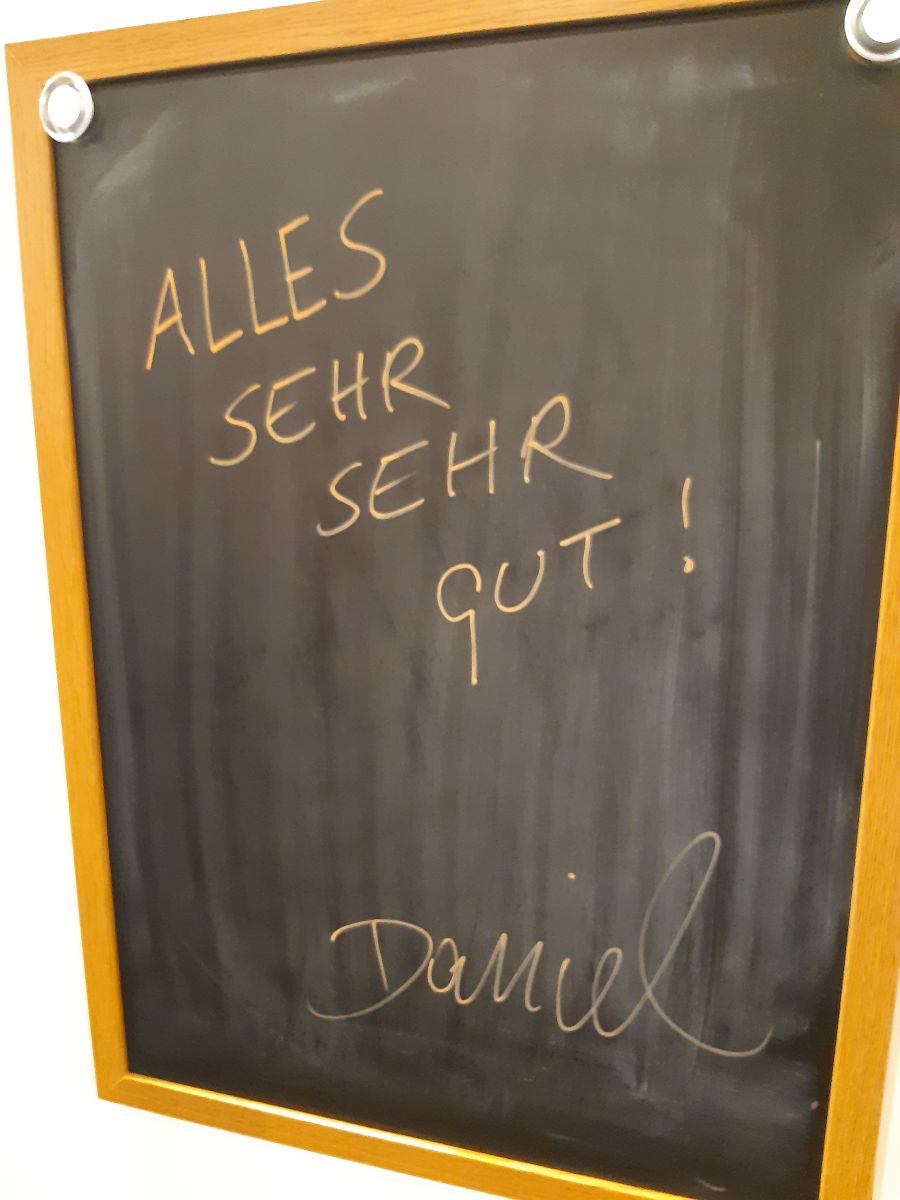 ALLES
SEHR
SEHR
GUT !
Daniel